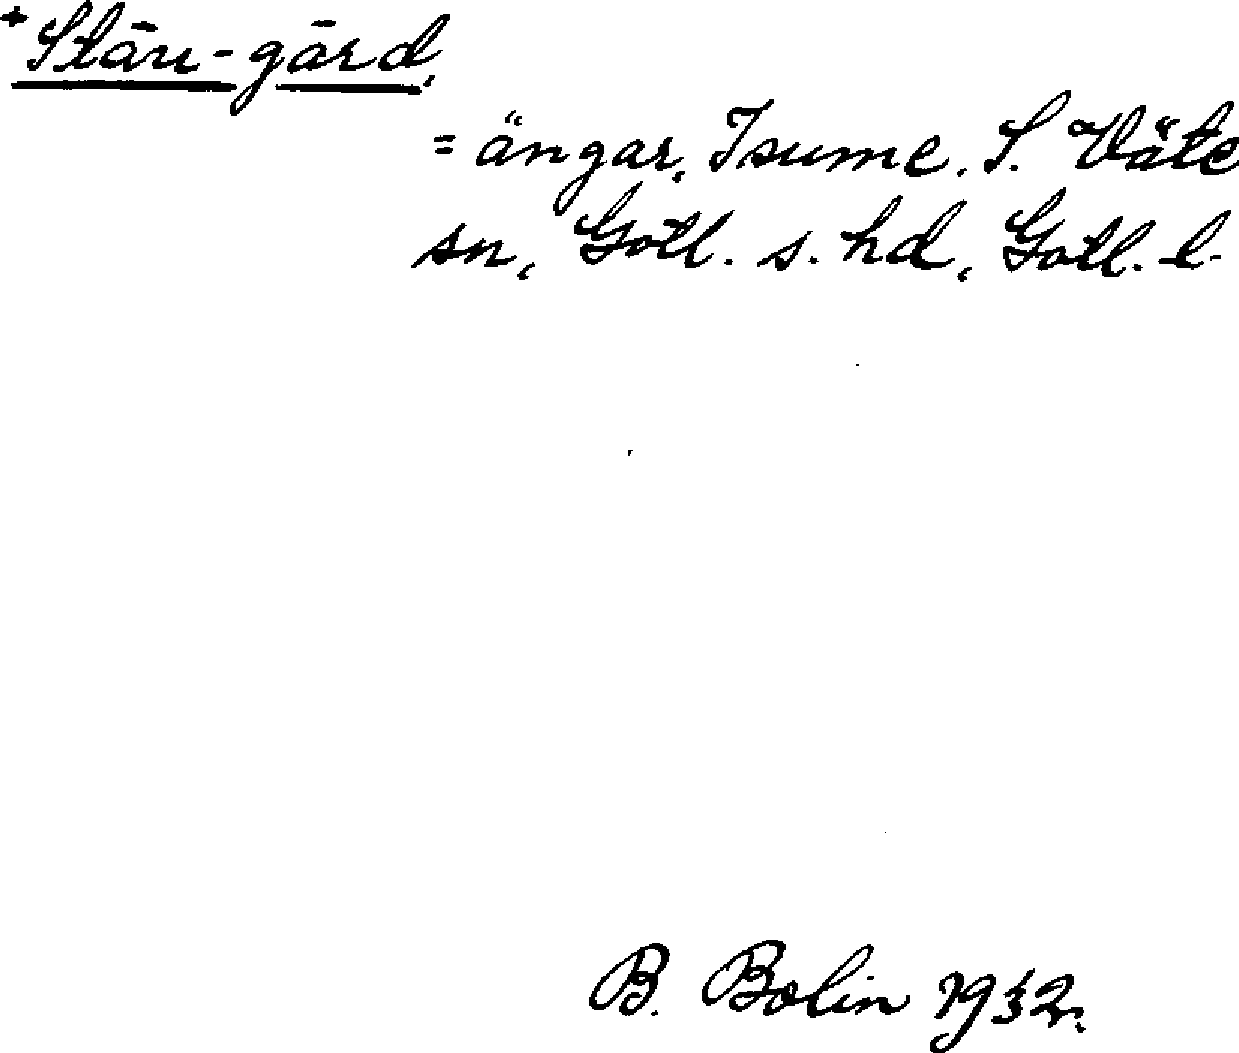 + Stāu-gārd,
= ängar, Isume. S. Väte
sn, Gotl. s. hd, Gotl. l.
B. Bolin 1932.